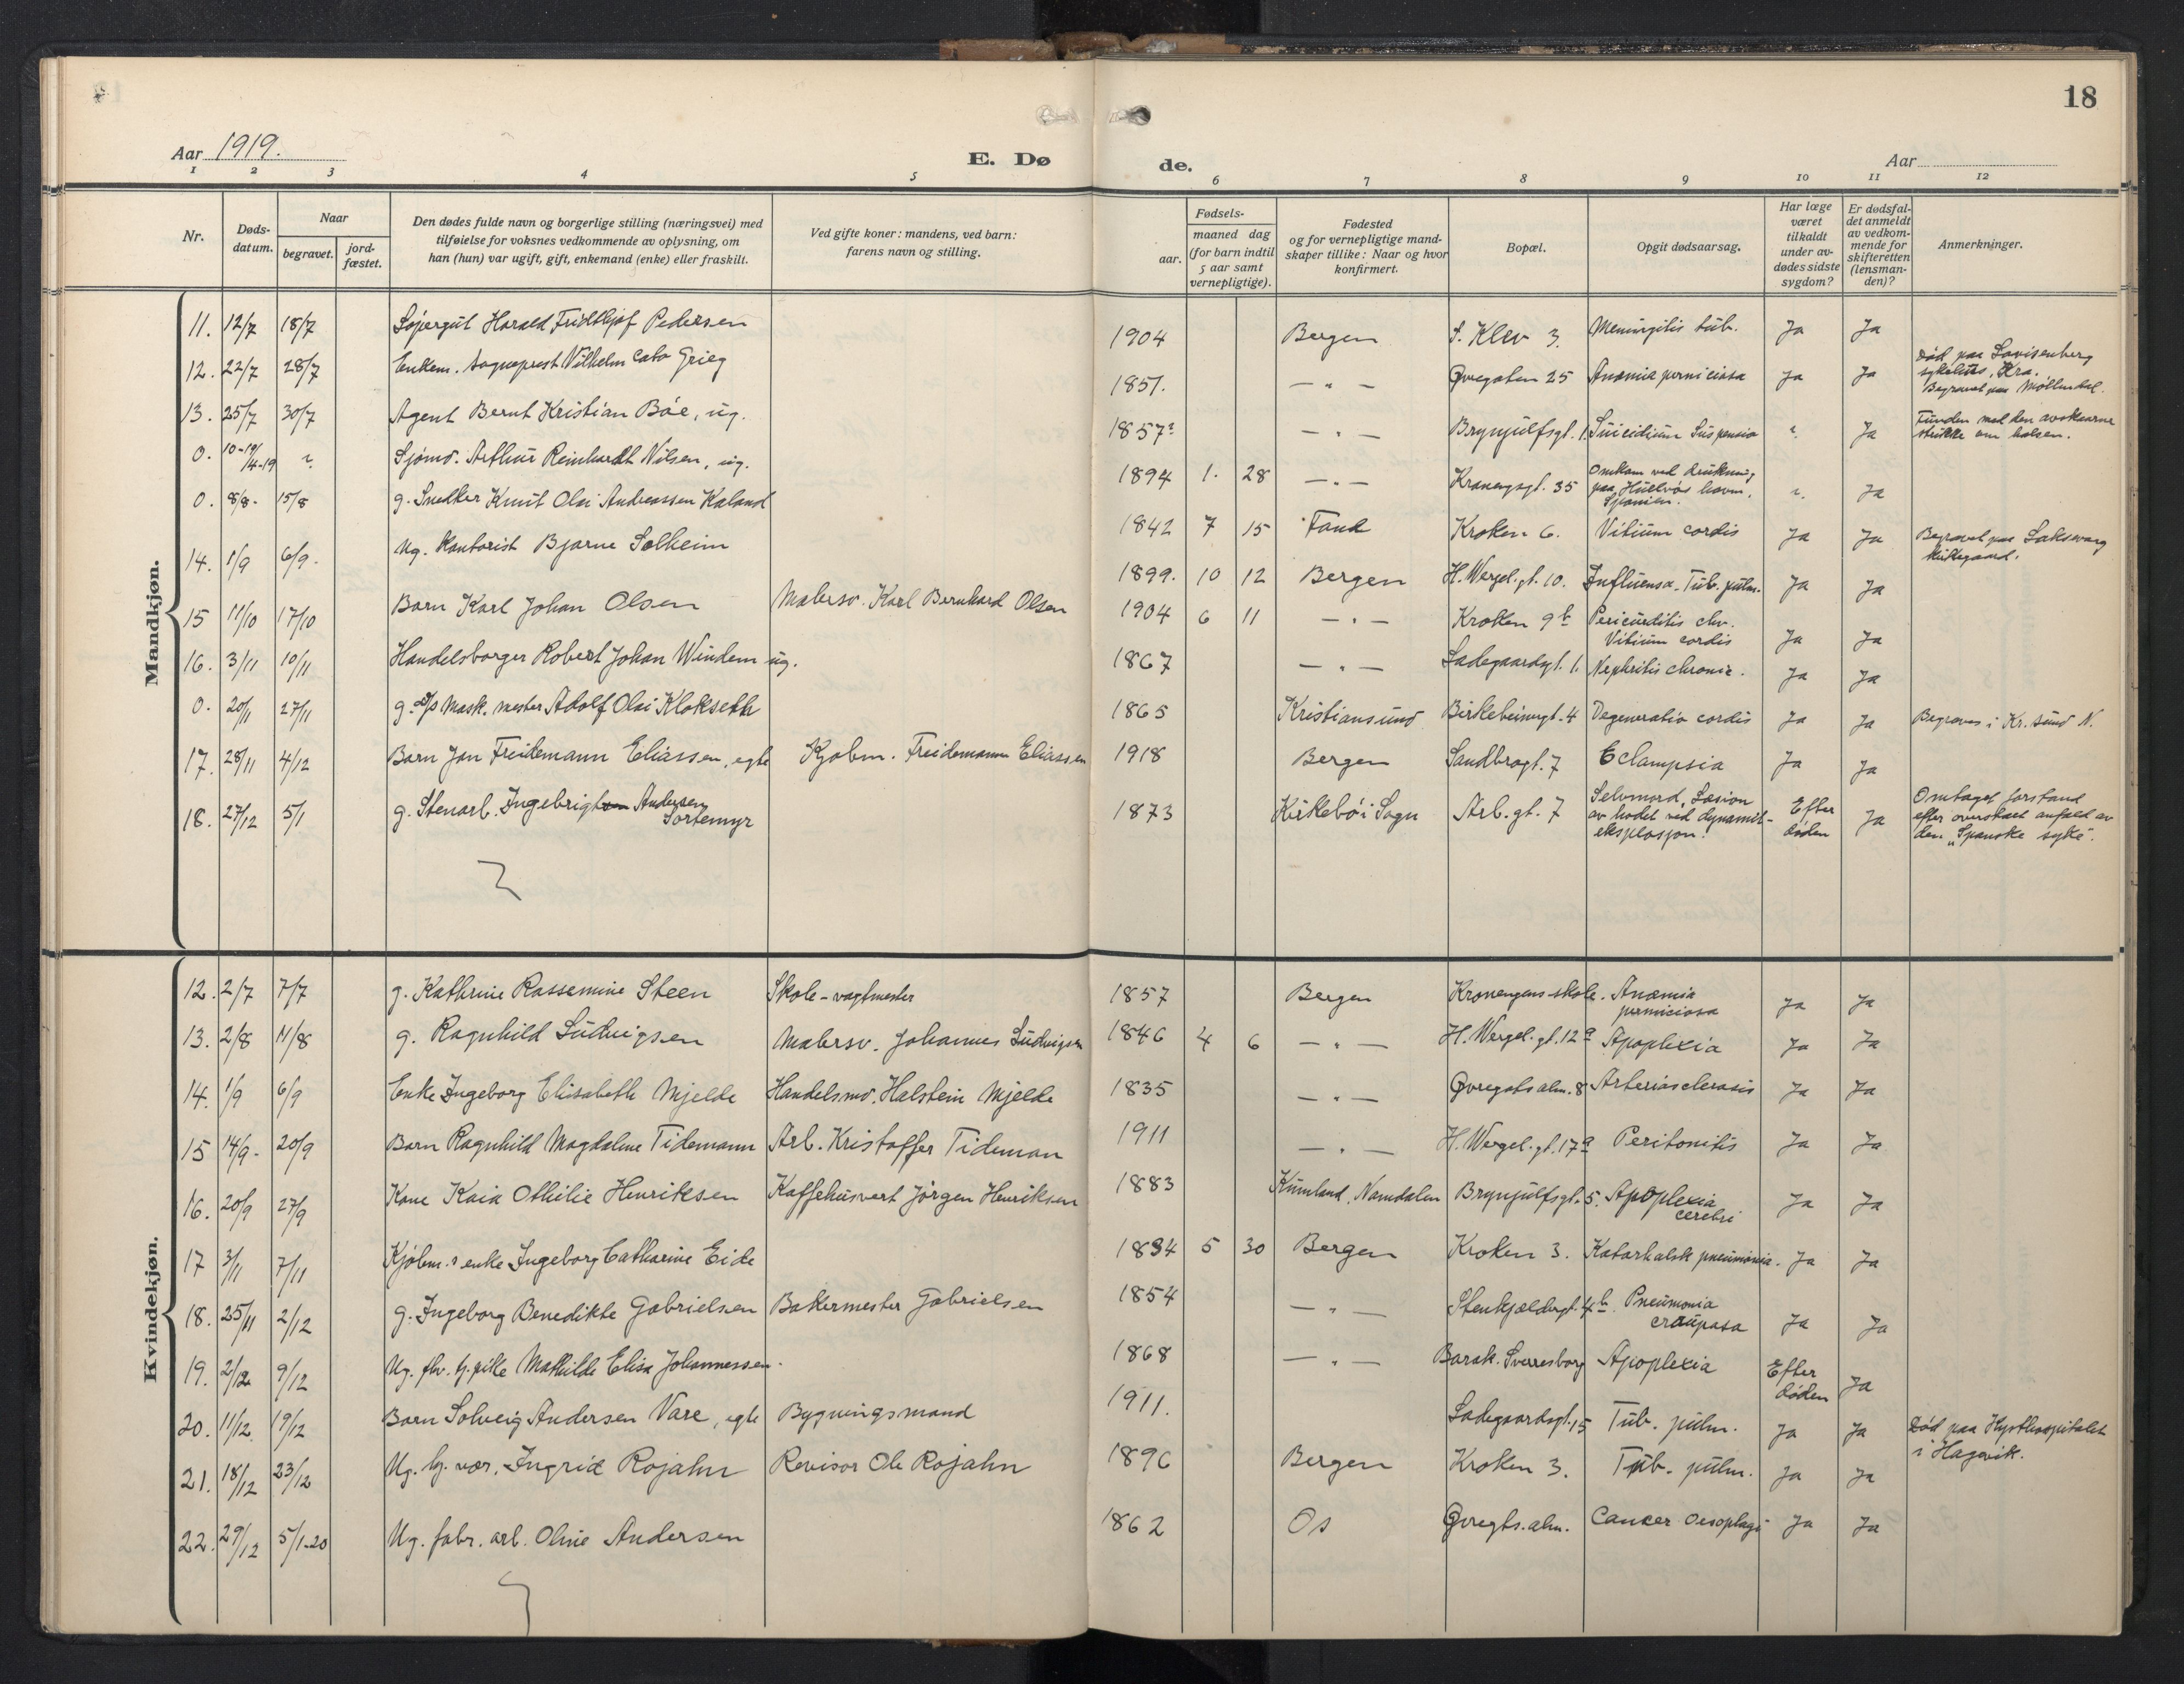 18
Aar 1919. E. Dø de. Aar
1 2 3 4 5 6 7 8 9 10 11 12
Nr.
Døds-
datum.
Naar
begravet.
jord-
fæstet.
Den dødes fulde navn og borgerlige stilling (næringsvei) med
tilføielse for voksnes vedkommende av oplysning, om
han (hun) var ugift, gift, enkemand (enke) eller fraskilt.
Ved gifte koner: mandens, ved barn:
farens navn og stilling.
Fødsels-
aar.
maaned dag
(for barn indtil
5 aar samt
vernepligtige).
Fødested
og for vernepligtige mand-
skaper tillike: Naar og hvor
konfirmert.
Bopæl.
Opgit dødsaarsag.
Har læge
været
tilkaldt
under av-
dødes sidste
sygdom?
Er dødsfal-
det anmeldt
av vedkom-
mende for
skifteretten
(lensman-
den)?
Anmerkninger.
Mandkjøn.
11. 12/7 18/7 Løpergut Harald Fridtkjof Pedersen 1904 Bergen S. Klev 3. Meningitis tub. Ja Ja
12. 22/7 28/7 Enkem. sogneprest Vilhelm Cato Grieg 1851. — " — Øvregaten 25 Anæmia perniciosa Ja Ja Død paa Lovisenberg
sykehus, Kra.
Begravet paa Møllendal.
13. 25/7 30/7 Agent Bernt Kristian Böe, ug. 1857? — " — Brynjulfsgt. 1. Suicidium Suspensio Ja Funden med den avskaarne
strikke om halsen.
0. 10-19/4-19 Sjömd. Arthur Reinhardt Nilsen, ug. 1894 1. 28 — " — Kranengsgt. 35 Omkom ved drukning
paa Huelvas havn,
Spanien. Ja
0. 8/8- 15/8 g. Snedker Knut Olai Andreassen Kaland 1842 7 15 Fane Kroken 6. Vitium cordis Ja Ja Begravet paa Laksevaag
kirkegaard.
14. 1/9 6/9. Ug. Kontorist Bjarne Solheim 1899. 10 12 Bergen H. Wergel. gt. 10. Influensa. Tub. pulm. Ja Ja
15 11/10 17/10 Barn Karl Johan Olsen Malersv. Karl Bernhard Olsen 1904 6 11 — " — Kroken 9b Pericarditis chr.
Vitium cordis Ja Ja
16. 3/11 10/11 Handelsborger Robert Johan Windem ug. 1867 — " — Ladegaardsgt. 1. Nephritis chronic. Ja Ja
0. 20/11 27/11 g. d/s Mask. mester Adolf Olai Klokseth 1865 Kristiansund Birkebeinergt. 4 Degeneratio cordis Ja Ja Begraves i Kr.sund N.
17. 28/11 4/12 Barn Jan Freidemann Eliassen, egte Kjøbm. Freidemann Eliassen 1918 Bergen Sandbrogt. 7 Eclampsia Ja Ja
18. 27/12 5/1 g. Stenarb. Ingebrigt Andersen
Sortemyr 1873 Kirkebö i Sogn Arb. gt. 7 Selvmord, Læsion
av hodet ved dynamit-
eksplosjon. Efter
døden Ja Omtaaget forstand
efter overstaaet anfald av
den "Spanske syke".
Kvindekjøn.
12. 2/7 7/7 g. Kathrine Rassemine Steen Skole-vagtmester 1857 Bergen Kronengens skole. Anæmia
perniciosa Ja Ja
13. 2/8 11/8 g. Ragnhild Ludvigsen Malersv. Johannes Ludvigsen 1846 4 6 — " — H. Wergel. gt. 12a Apoplexia Ja Ja
14. 1/9 6/9 Enke Ingeborg Elisabeth Mjelde Handelsmd. Halstein Mjelde 1835 — " — Øvregats alm. 8 Arteriosclerosis Ja Ja
15 14/9- 20/9 Barn Ragnhild Magdalene Tidemann Arb. Kristoffer Tideman 1911 — " — H. Wergel. gt. 17a Peritonitis Ja Ja
16. 20/9 27/9 Kone Kaia Othilie Henriksen Kaffehusvert Jörgen Henriksen 1883 Namdalen Brynjulfsgt. 5. Apoplexia
cerebri Ja Ja
17 3/11 7/11 Kjøbm.s enke Ingeborg Catharine Eide 1834 5 30 Bergen Kroken 3. Katarhalsk pneumonia. Ja Ja
18. 25/11 2/12 g. Ingeborg Benedikte Gabrielsen Bakermester Gabrielsen 1854 — " — Stenkjeldergt. 4b. Pneumonia
croupøsa Ja Ja
19. 2/12 9/12 Ug. fhv. tj. pike Mathilde Elisa Johannessen. 1868 — " — Barak. Sverresborg Apoplexia Efter
døden Ja
20. 11/12 19/12 Barn Solveig Andersen Vare, egte Bygningsmand 1911. Ladegaardsgt. 15 Tub. pulm. Ja Ja Død paa Kysthospitalet
i Hagevik.
21. 18/12 23/12 Ug. hj. vær. Ingrid Rojahn Revisor Ole Rojahn 1896 Bergen Kroken 3. Tub. pulm. Ja Ja
22. 29/12 5/1-20 Ug. fabr. arb. Oline Andersen 1862 Os Øvregts. alm. Cancer Oesophagi Ja Ja